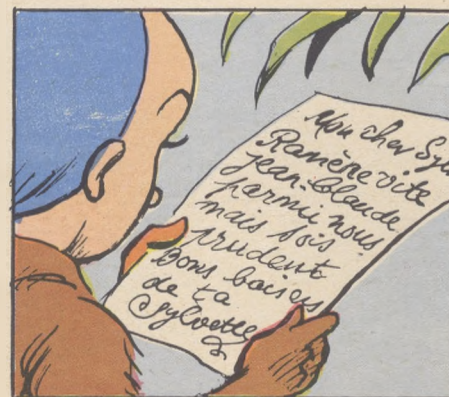 Mon cher Syl
Ramène vite
jean-Claude
parmi nous
mais sois
prudent
Bons baisers
de ta
Sylvette